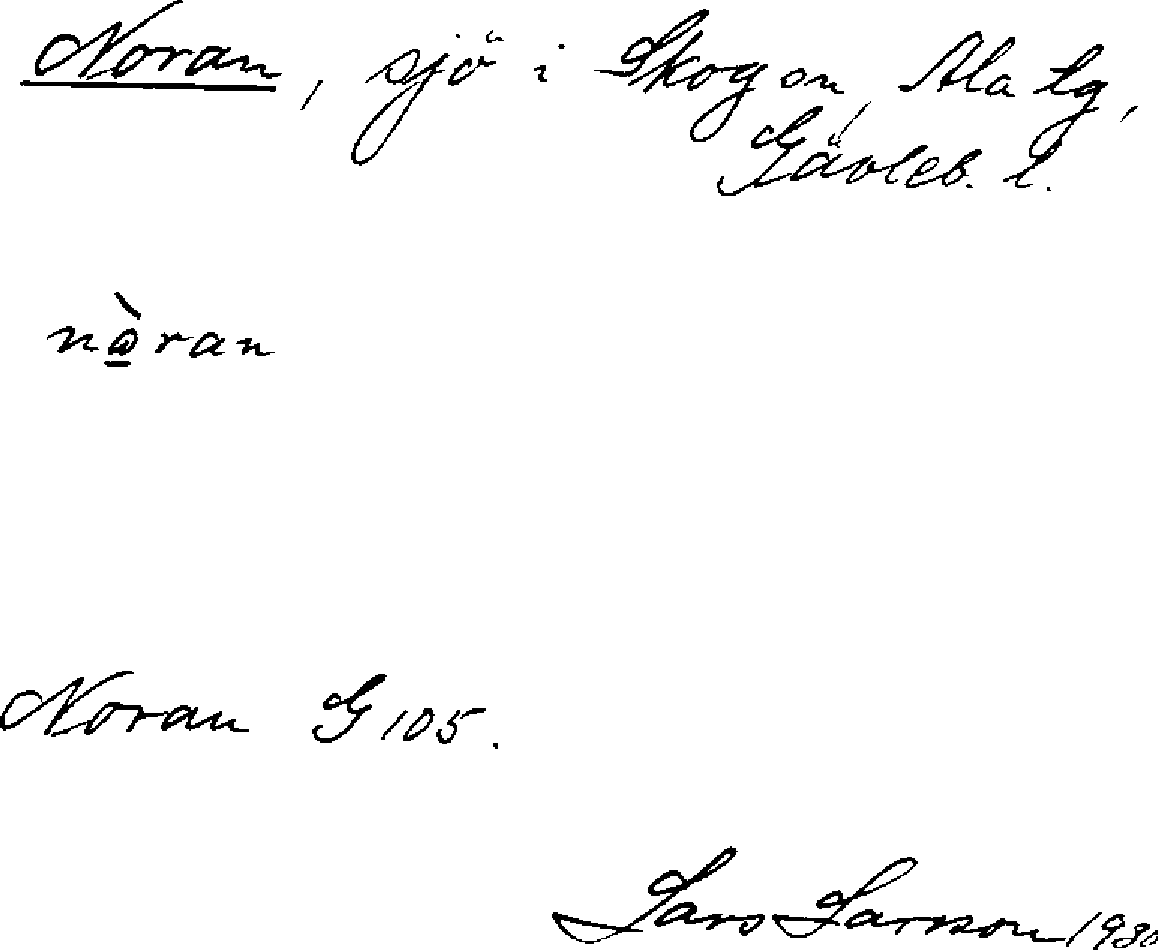 Noran, sjö i Skog sn, Ala tg,
Gävleb. l.
nὼ̲ran
Noran G 105.
Lars Larsson 1930